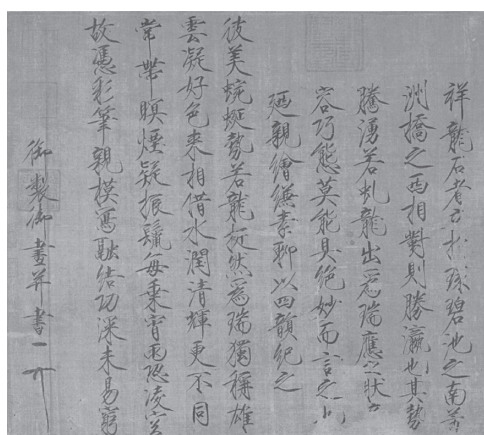 祥龍石者立於環碧池之南芳
洲橋之西相對則勝瀛也其勢
騰湧若虬龍出為瑞應之狀奇
容巧態莫能具絕妙而言之也
廼親繪縑素聊以四韻紀之
彼美蜿蜒勢若龍挺然為瑞獨稱雄
雲凝好色來相借水潤清輝更不同
常帶暝煙疑振鬣每乘宵雨恐凌空
故憑彩筆親模寫融結功深未易窮
御製御畫并書